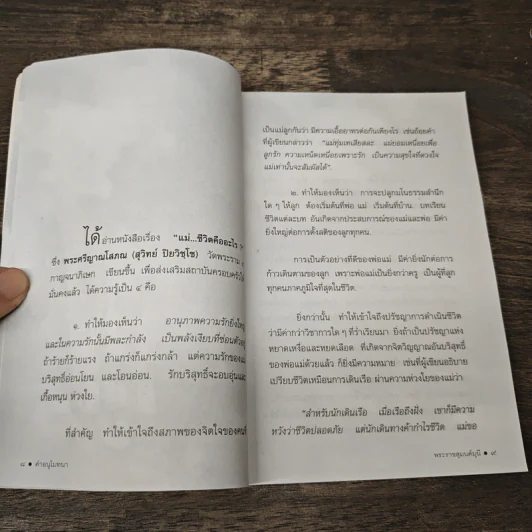 ได้อ่านหนังสือเรื่อง "แม่...ชีวิตคืออะไร ?"
ซึ่ง พระศรีญาณโสภณ (สุวิทย์ ปิยวิชฺโช) วัดพระราม ๙
กาญจนาภิเษก เขียนขึ้น เพื่อส่งเสริมสถาบันครอบครัวให้
มั่นคงแล้ว ได้ความรู้เป็น ๔ คือ
๑. ทำให้มองเห็นว่า อานุภาพความรักยิ่งใหญ่
และในความรักนั้นมีพละกำลัง เป็นพลังเงียบที่ซ่อนตัวอยู่
ถ้าร้ายก็ร้ายแรง ถ้าแกร่งก็แกร่งกล้า แต่ความรักของแม่
บริสุทธิ์อ่อนโยน และโอนอ่อน. รักบริสุทธิ์จะอบอุ่นและ
เกื้อหนุน ห่วงใย.
ที่สำคัญ ทำให้เข้าใจถึงสภาพของจิตใจของคนที่
๘ ● คำอนุโมทนา
เป็นแม่ลูกกันว่า มีความเอื้ออาทรต่อกันเพียงไร เช่นถ้อยคำ
ที่ผู้เขียนกล่าวว่า "แม่ทุ่มเทเสียสละ แม่ยอมเหนื่อยเพื่อ
ลูกรัก ความเหน็ดเหนื่อยเพราะรัก เป็นความสุขใจที่ดวงใจ
แม่เท่านั้นจะสัมผัสได้".
๒. ทำให้มองเห็นว่า การจะปลูกมโนธรรมสำนึก
ใด ๆ ให้ลูก ต้องเริ่มต้นที่พ่อแม่ เริ่มต้นที่บ้าน. บทเรียน
ชีวิตแต่ละบท อันเกิดจากประสบการณ์ของแม่และพ่อ มีค่า
ยิ่งใหญ่ต่อการตั้งสติของลูกทุกคน.
การเป็นตัวอย่างที่ดีของพ่อแม่ มีค่ายิ่งนักต่อการ
ก้าวเดินตามของลูก เพราะพ่อแม่เป็นยิ่งกว่าครู เป็นผู้ที่ลูก
ทุกคนภาคภูมิใจที่สุดในชีวิต.
ยิ่งกว่านั้น ทำให้เข้าใจถึงปรัชญาการดำเนินชีวิต
ว่ามีค่ากว่าวิชาการใด ๆ ที่ร่ำเรียนมา. ยิ่งถ้าเป็นปรัชญาแห่ง
หยาดเหงื่อและหยดเลือด ที่เกิดจากจิตวิญญาณอันบริสุทธิ์
ของพ่อแม่ด้วยแล้ว ก็ยิ่งมีความหมาย เช่นที่ผู้เขียนอธิบาย
เปรียบชีวิตเหมือนการเดินเรือ ผ่านความห่วงใยของแม่ว่า
"สำหรับนักเดินเรือ เมื่อเรือถึงฝั่ง เขาก็มีความ
หวังว่าชีวิตปลอดภัย แต่นักเดินทางค้ากำไรชีวิต แม่ขอ
พระราชสุมนต์มุนี ● ๙